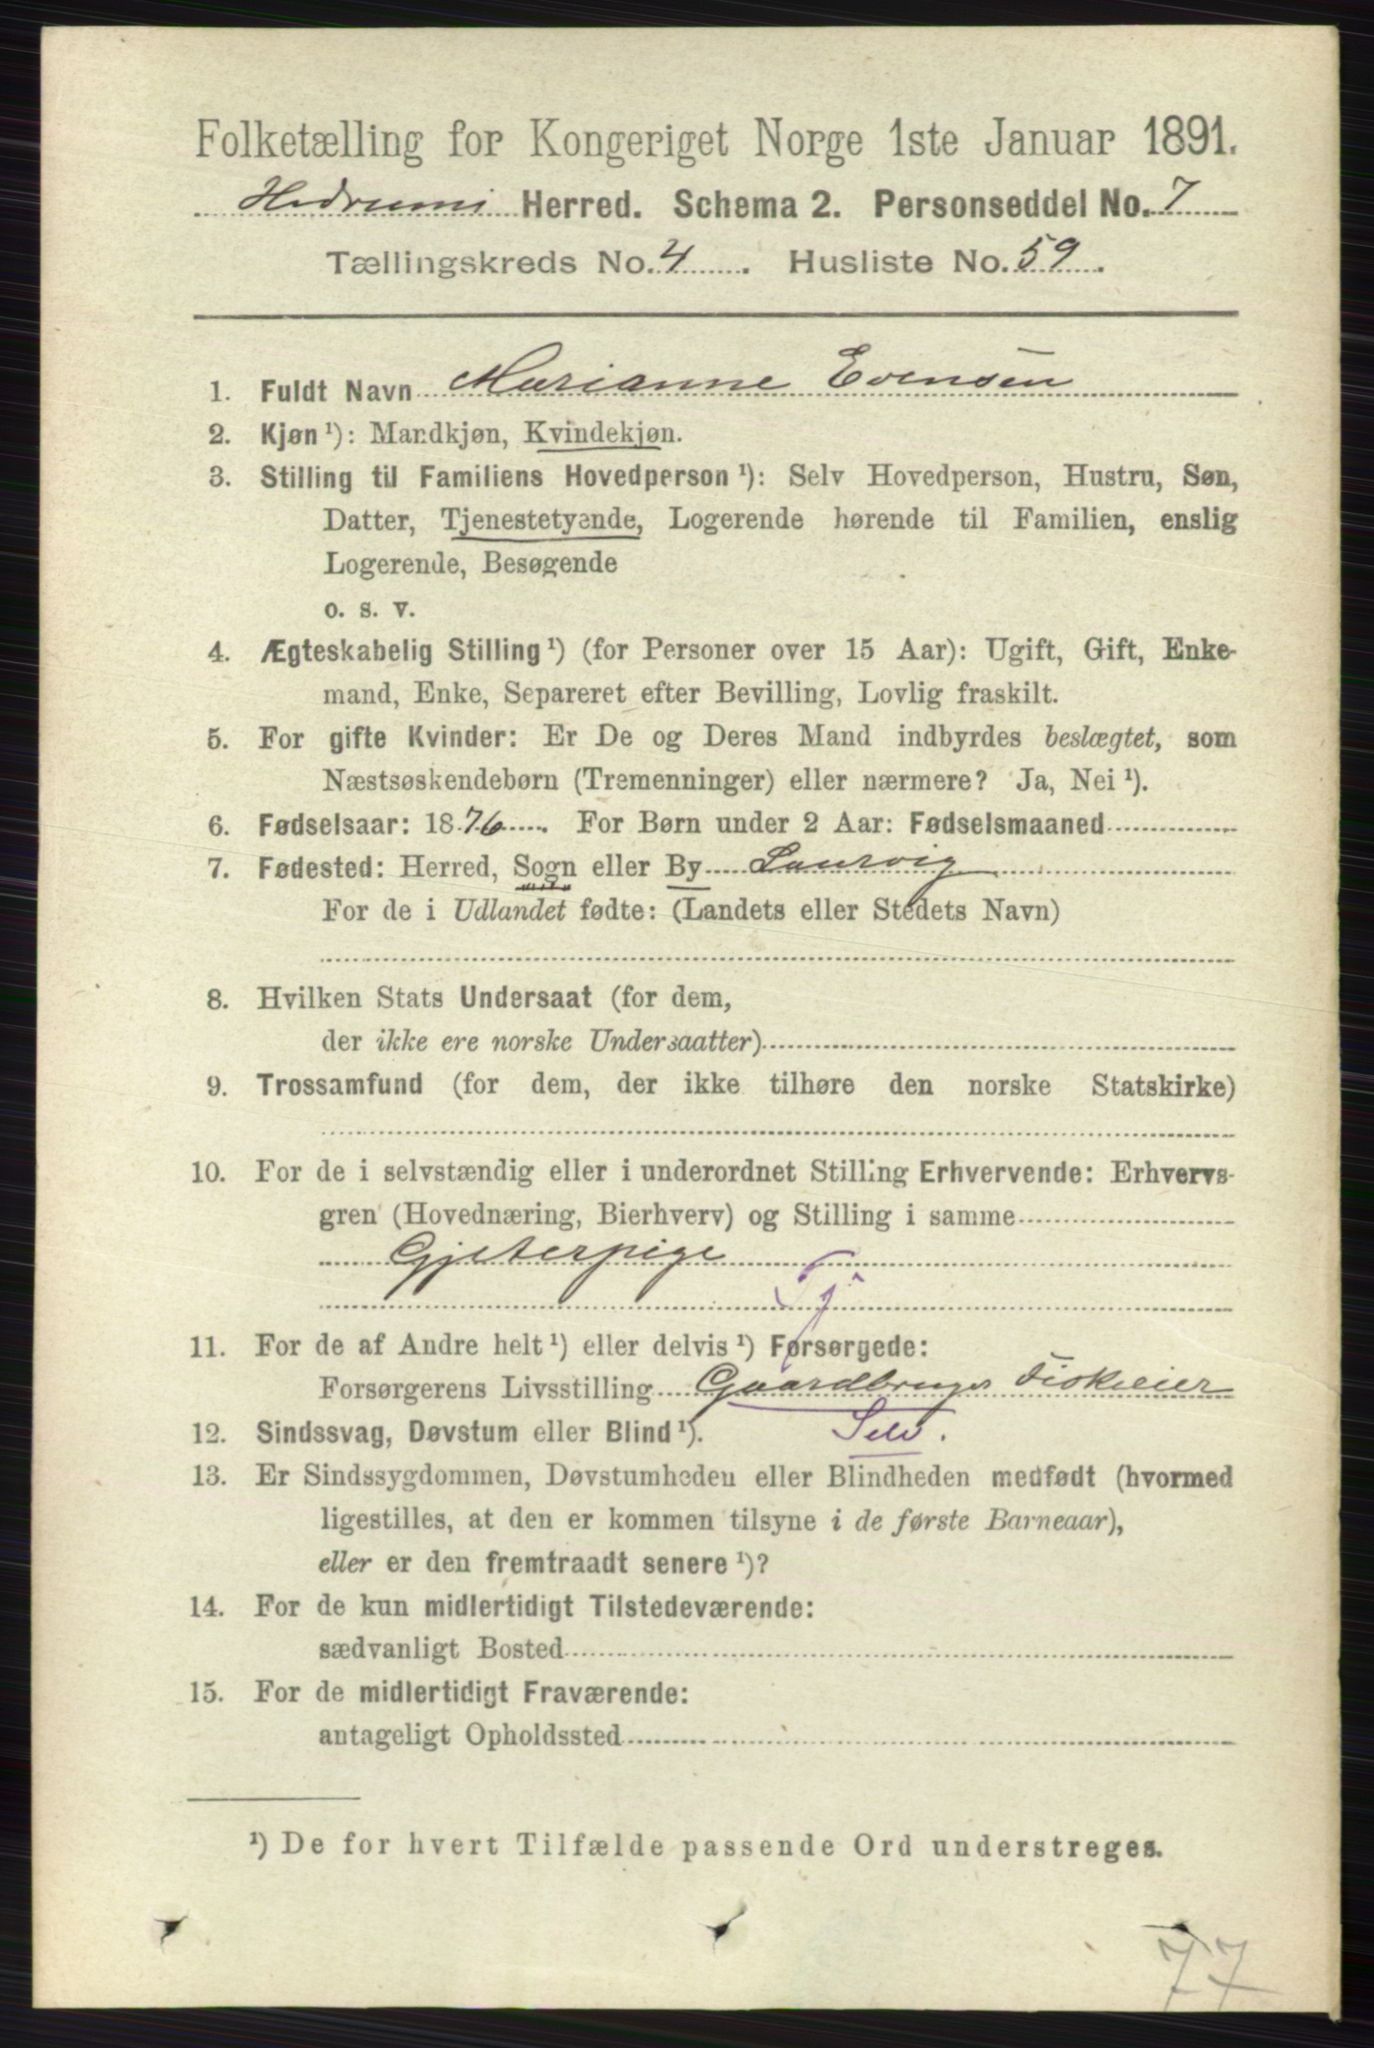 Folketælling for Kongeriget Norge 1ste Januar 1891.
Hedrums Herred. Schema 2. Personseddel No. 7
Tællingskreds No. 4. Husliste No. 59.
1. Fuldt Navn Marianne Evensen
2. Kjøn ¹): Mandkjøn, Kvindekjøn.
3. Stilling til Familiens Hovedperson ¹): Selv Hovedperson, Hustru, Søn,
Datter, Tjenestetyende, Logerende hørende til Familien, enslig
Logerende, Besøgende
o. s. v.
4. Ægteskabelig Stilling ¹) (for Personer over 15 Aar): Ugift, Gift, Enke-
mand, Enke, Separeret efter Bevilling, Lovlig fraskilt.
5. For gifte Kvinder: Er De og Deres Mand indbyrdes beslægtet, som
Næstsøskendebørn (Tremenninger) eller nærmere? Ja, Nei ¹).
6. Fødselsaar: 1876. For Børn under 2 Aar: Fødselsmaaned
7. Fødested: Herred, Sogn eller By Laurvig
For de i Udlandet fødte: (Landets eller Stedets Navn)
8. Hvilken Stats Undersaat (for dem,
der ikke ere norske Undersaatter)
9. Trossamfund (for dem, der ikke tilhøre den norske Statskirke)
10. For de i selvstændig eller i underordnet Stilling Erhvervende: Erhvervs-
gren (Hovednæring, Bierhverv) og Stilling i samme
Gjeterpige
Tj
11. For de af Andre helt ¹) eller delvis ¹) Forsørgede:
Forsørgerens Livsstilling Gaardbruger
12. Sindssvag, Døvstum eller Blind ¹). Selv.
13. Er Sindssygdommen, Døvstumheden eller Blindheden medfødt (hvormed
ligestilles, at den er kommen tilsyne i de første Barneaar),
eller er den fremtraadt senere ¹)?
14. For de kun midlertidigt Tilstedeværende:
sædvanligt Bosted
15. For de midlertidigt Fraværende:
antageligt Opholdssted
¹) De for hvert Tilfælde passende Ord understreges.
77